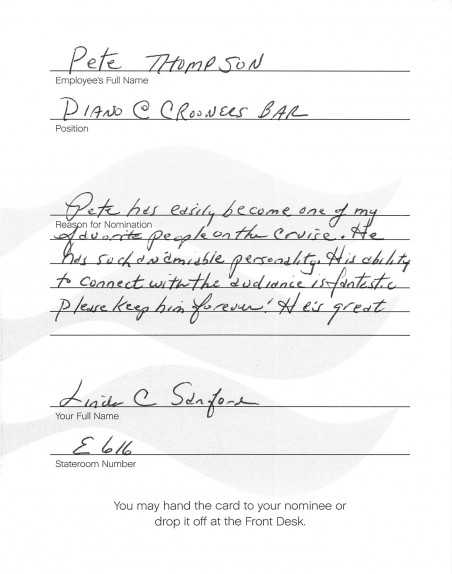 Pete THOMPSON
Employee's Full Name
PIANO @ CROONERS BAR
Position
Pete has easily become one of my
Reason for Nomination
favorite people on the cruise. He
has such an amiable personality. His ability
to connect with the audiance is fantastic
Please keep him forever! He is great
Linda C Sanford
Your Full Name
E 616
Stateroom Number
You may hand the card to your nominee or
drop it off at the Front Desk.